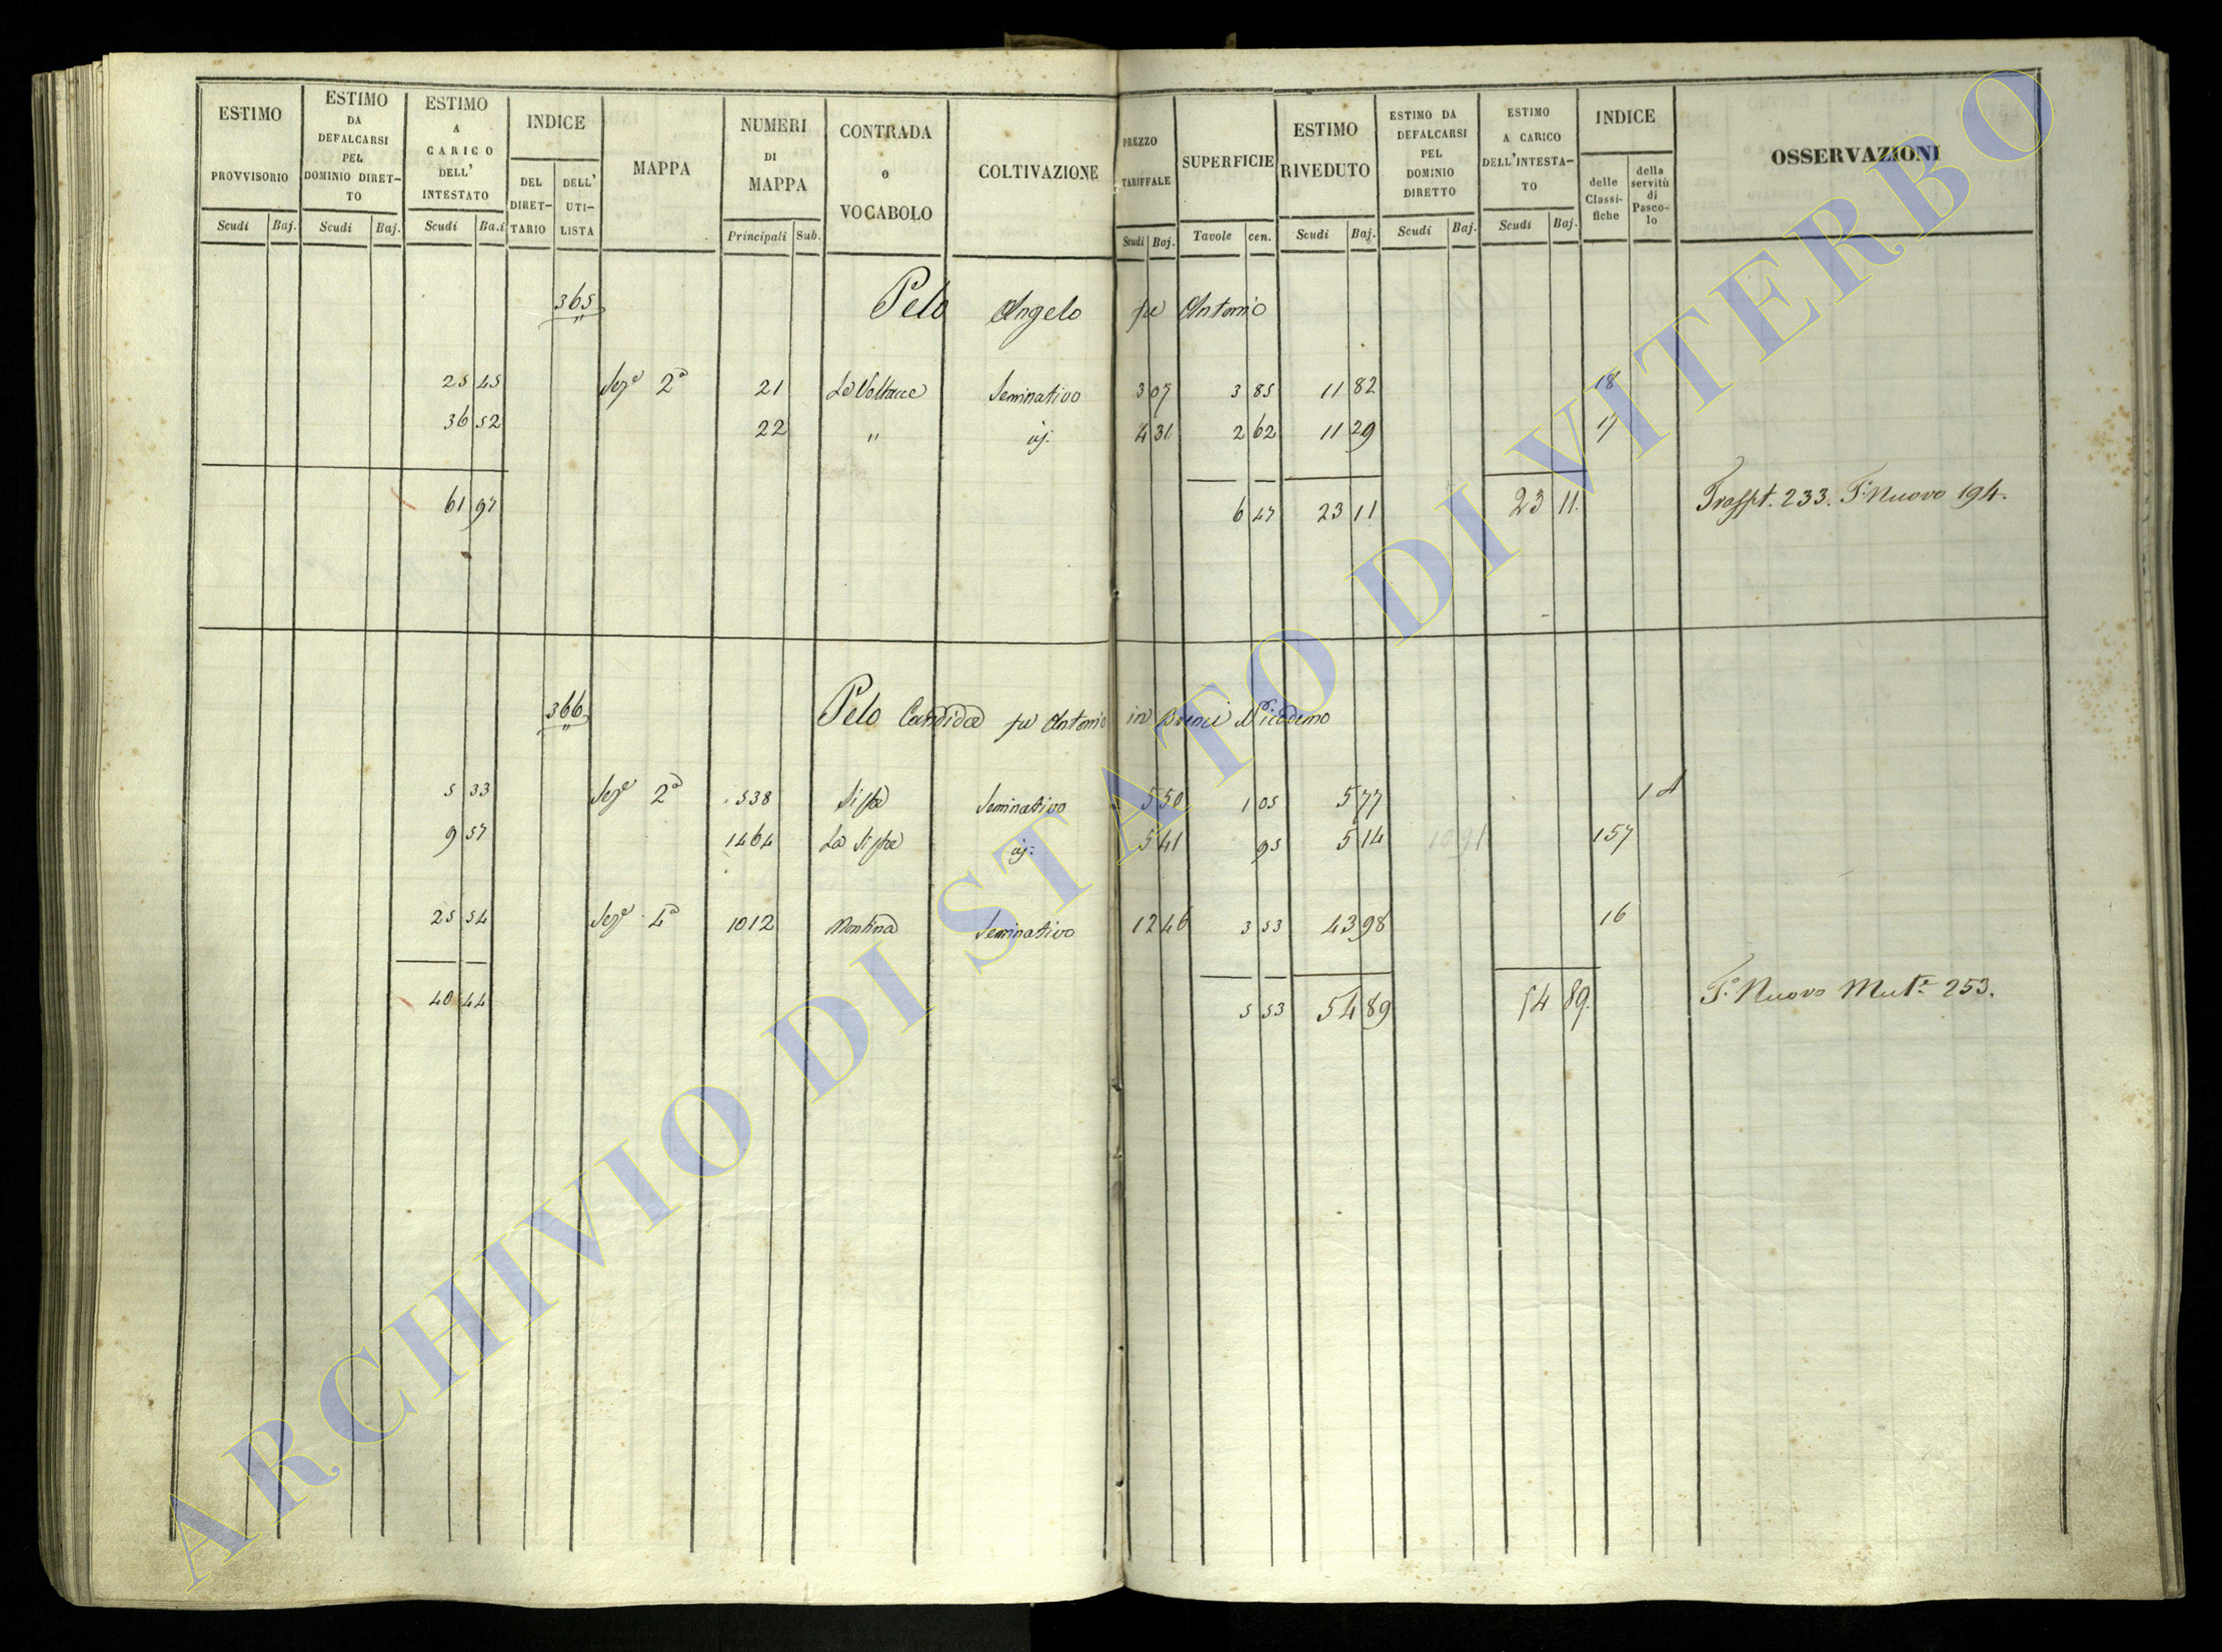 ESTIMO PROVVISORIO
Scudi Baj.
ESTIMO DA DEFALCARSI PEL DOMINIO DIRET-TO
Scudi Baj.
ESTIMO A CARICO DELL' INTESTATO
Scudi Ba.i
INDICE
DEL DIRET-TARIO
DELL' UTI-LISTA
MAPPA
NUMERI DI MAPPA
Principali Sub.
CONTRADA o VOCABOLO
COLTIVAZIONE
PREZZO TARIFFALE
Scudi Baj.
SUPERFICIE
Tavole cen.
ESTIMO RIVEDUTO
Scudi Baj.
ESTIMO DA DEFALCARSI PEL DOMINIO DIRETTO
Scudi Baj.
ESTIMO A CARICO DELL'INTESTA-TO
Scudi Baj.
INDICE
delle Classi-fiche
della servitù di Pasco-lo
OSSERVAZIONI
365 Pelo Angelo fu Antonio
25 45 Sez.e 2a 21 Seminativo 3 07 3 85 11 82 18
36 52 22 " 4 31 2 62 11 29 17
61 97 6 47 23 11 23 11. Traspt. 233. T. Nuovo 194.
366 Pelo Candida fu Antonio in Nicodemo
5 33 Sez.e 2a 538 Seminativo 5 50 1 05 5 77
9 57 1464 5 41 95 5 14 10 91 157
25 54 Sez.e 4a 1012 Montina Seminativo 12 46 3 53 43 98 16
40 44 5 53 54 89 54 89. T. Nuovo Mut.e 253.
ARCHIVIO DI STATO DI VITERBO